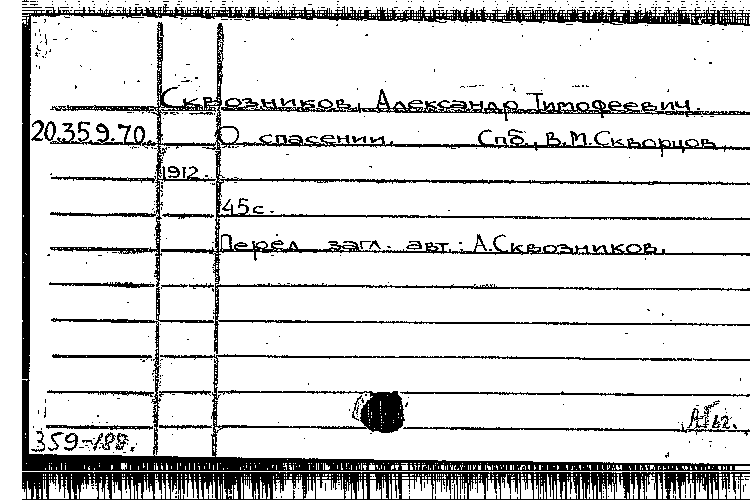 Сквозников, Александр Тимофеевич.
20.359.70. О спасении. Спб., В.М.Скворцов,
1912.
45с.
Перед загл. авт.: А.Сквозников.
359-188.